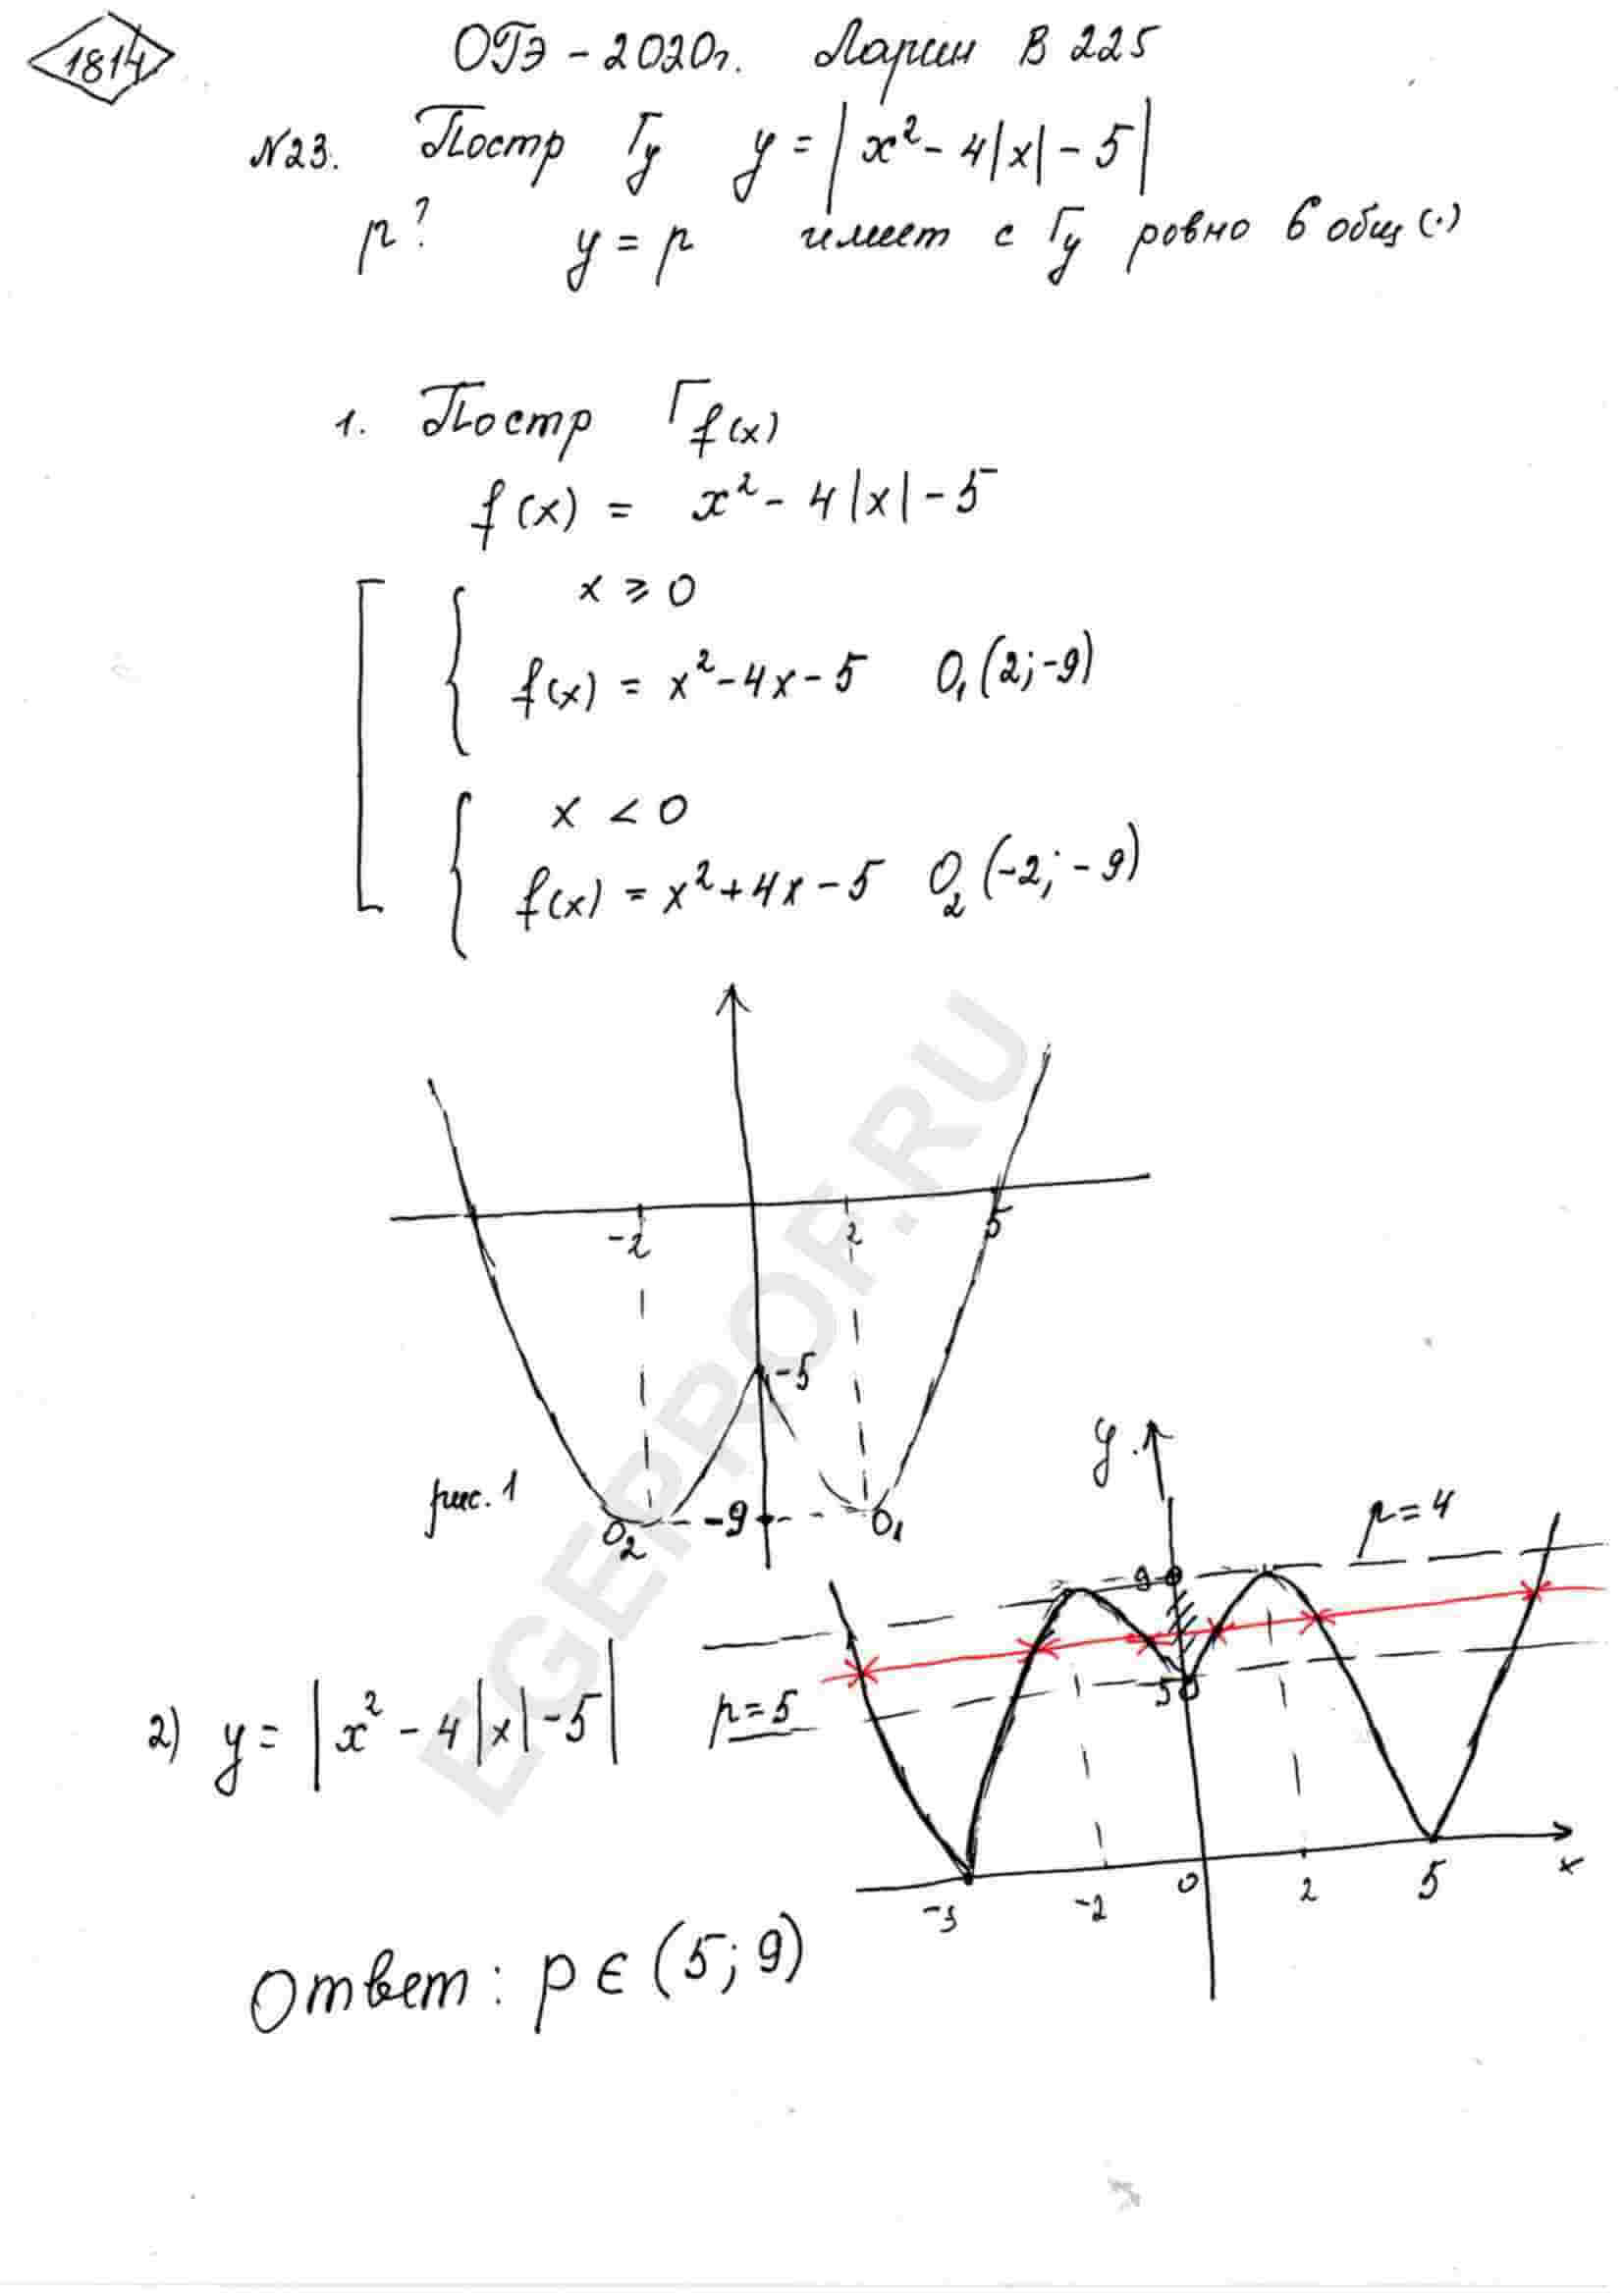 1814
ОГЭ - 2020г. Ларин В 225
№23. Постр Гу y = | x² - 4|x| - 5|
p? y = p имеет с Гу ровно 6 общ (·)
1. Постр Г f(x)
f(x) = x² - 4|x| - 5
x ⩾ 0
f(x) = x² - 4x - 5 O₁(2; -9)
x < 0
f(x) = x² + 4x - 5 O₂(-2; -9)
-2 2 5
-5
рис. 1
O₂ -9 O₁
y
p = 4
9
5
2) y = | x² - 4|x| - 5| p = 5
-5 -2 0 2 5 x
Ответ: p ∈ (5; 9)
EGEPROF.RU